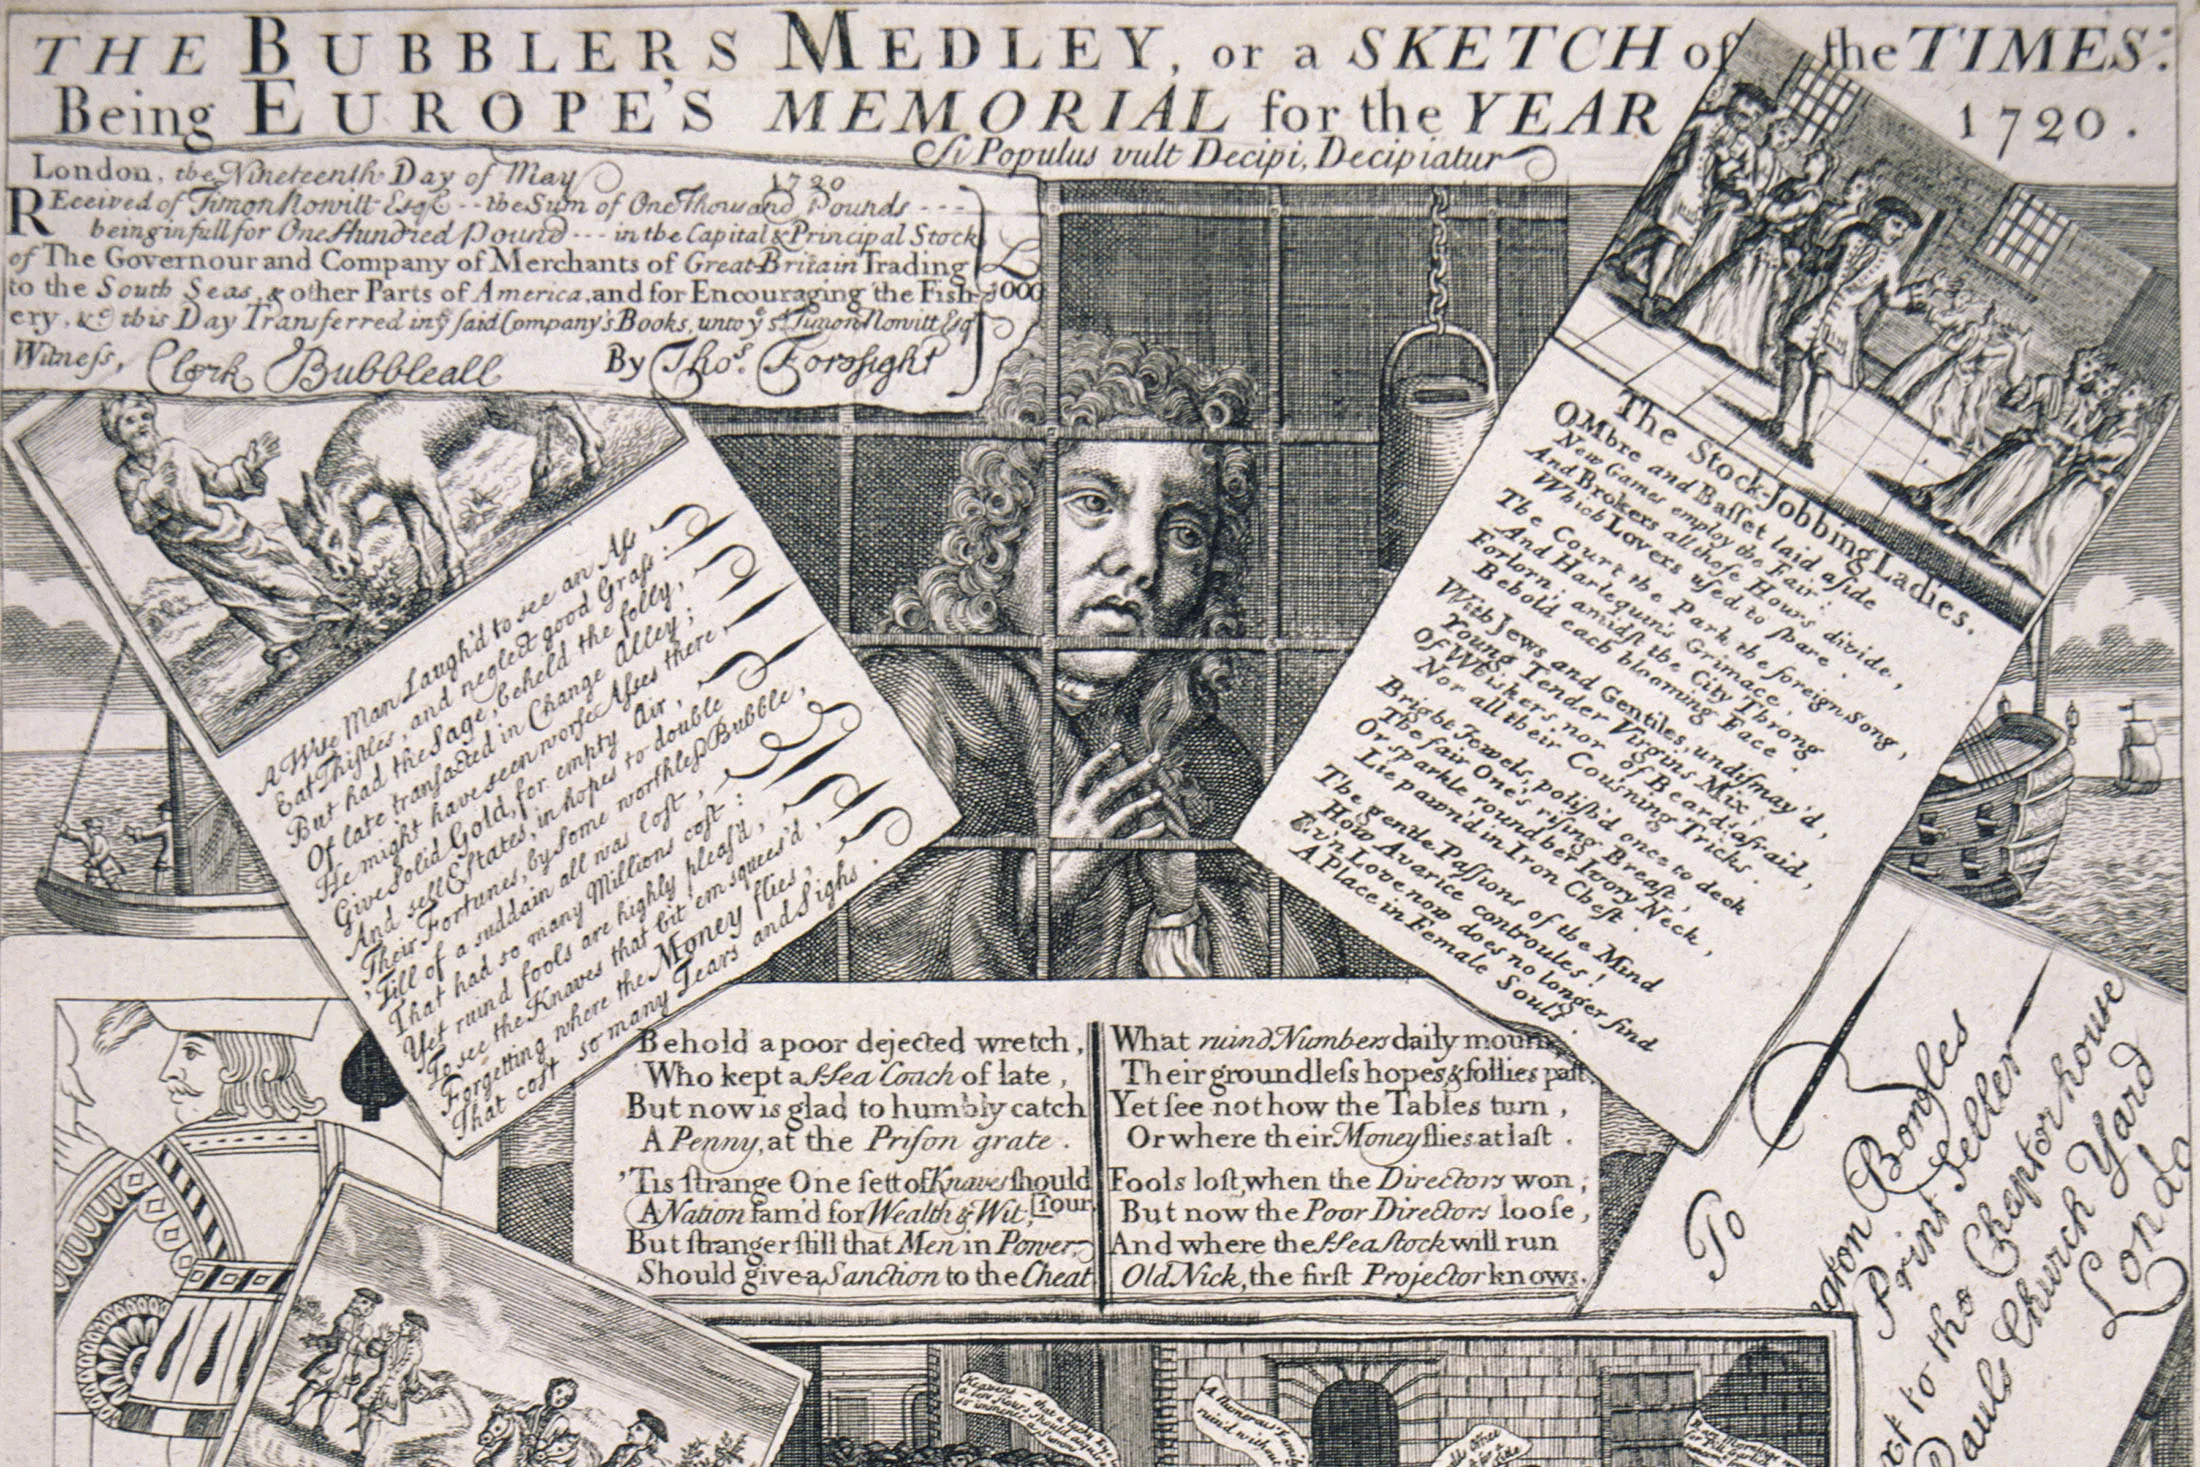 THE BUBBLERS MEDLEY, or a SKETCH of the TIMES:
Being EUROPE'S MEMORIAL for the YEAR 1720.
Si Populus vult Decipi, Decipiatur
London, the Nineteenth Day of May 1720
REceived of Timon Nowitt Esqr. -- the Sum of One Thousand Pounds ---
being in full for One Hundred Pound --- in the Capital & Principal Stock
of The Governour and Company of Merchants of Great-Britain Trading
to the South Seas, & other Parts of America, and for Encouraging the Fish-
ery, &c. this Day Transferred in ye. said Company's Books, unto ye. sd. Timon Nowitt Esqr
£ 1000
Witness, Clerk Bubbleall By Thos. Foresight
A Wise Man Laugh'd to see an Aſs
Eat Thiſtles, and neglect good Graſs:
But had the Sage, beheld the folly,
Of late tranſacted in Change Alley;
He might have seen worse Aſses there,
Give Solid Gold, for empty Air,
And sell Eſtates, in hopes to double
Their Fortunes, by some worthleſs Bubble,
'Till of a suddain all was lost,
That had so many Millions cost:
Yet ruind fools are highly pleaſ'd,
To see the Knaves that bit 'em squeez'd,
Forgetting where the Money flies,
That cost so many Tears and Sighs.
The Stock-Jobbing Ladies.
OMbre and Baſset laid aſide
New Games employ the Fair:
And Brokers all those Hours divide,
Which Lovers uſed to ſpare.
The Court the Park, the foreign Song,
And Harlequin's Grimace,
Forlorn; amidſt the City Throng
Behold each blooming Face.
With Jews and Gentiles, undiſmay'd,
Young Tender Virgins Mix;
Of Whiskers nor of Beards afraid,
Nor all their Cousning Tricks.
Bright Jewels, poliſh'd once to deck
The fair One's riſing Breaſt,
Or sparkle round her Ivory Neck,
Lie pawn'd in Iron Cheſt.
The gentle Paſſions of the Mind
How Avarice controules!
Ev'n Love now does no longer find
A Place in Female Souls.
Behold a poor dejected wretch,
Who kept a Sea Coach of late,
But now is glad to humbly catch
A Penny, at the Priſon grate.
'Tis ſtrange One ſett of Knaves ſhould
[ſour,
A Nation fam'd for Wealth & Wit;
But ſtranger ſtill that Men in Power,
Should give a Sanction to the Cheat
What ruind Numbers daily mourn
Their groundleſs hopes & follies paſt,
Yet ſee not how the Tables turn,
Or where their Money flies at laſt.
Fools loſt, when the Directors won;
But now the Poor Directors looſe,
And where the Sea Stock will run
Old Nick, the firſt Projector knows.
To
gton Bowles
Print Seller
xt to the Chapter house
Pauls Church Yard
Londo